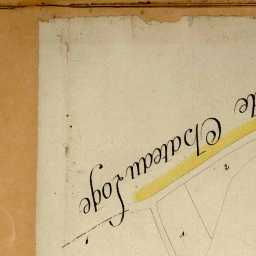 de Chateau Loge
2